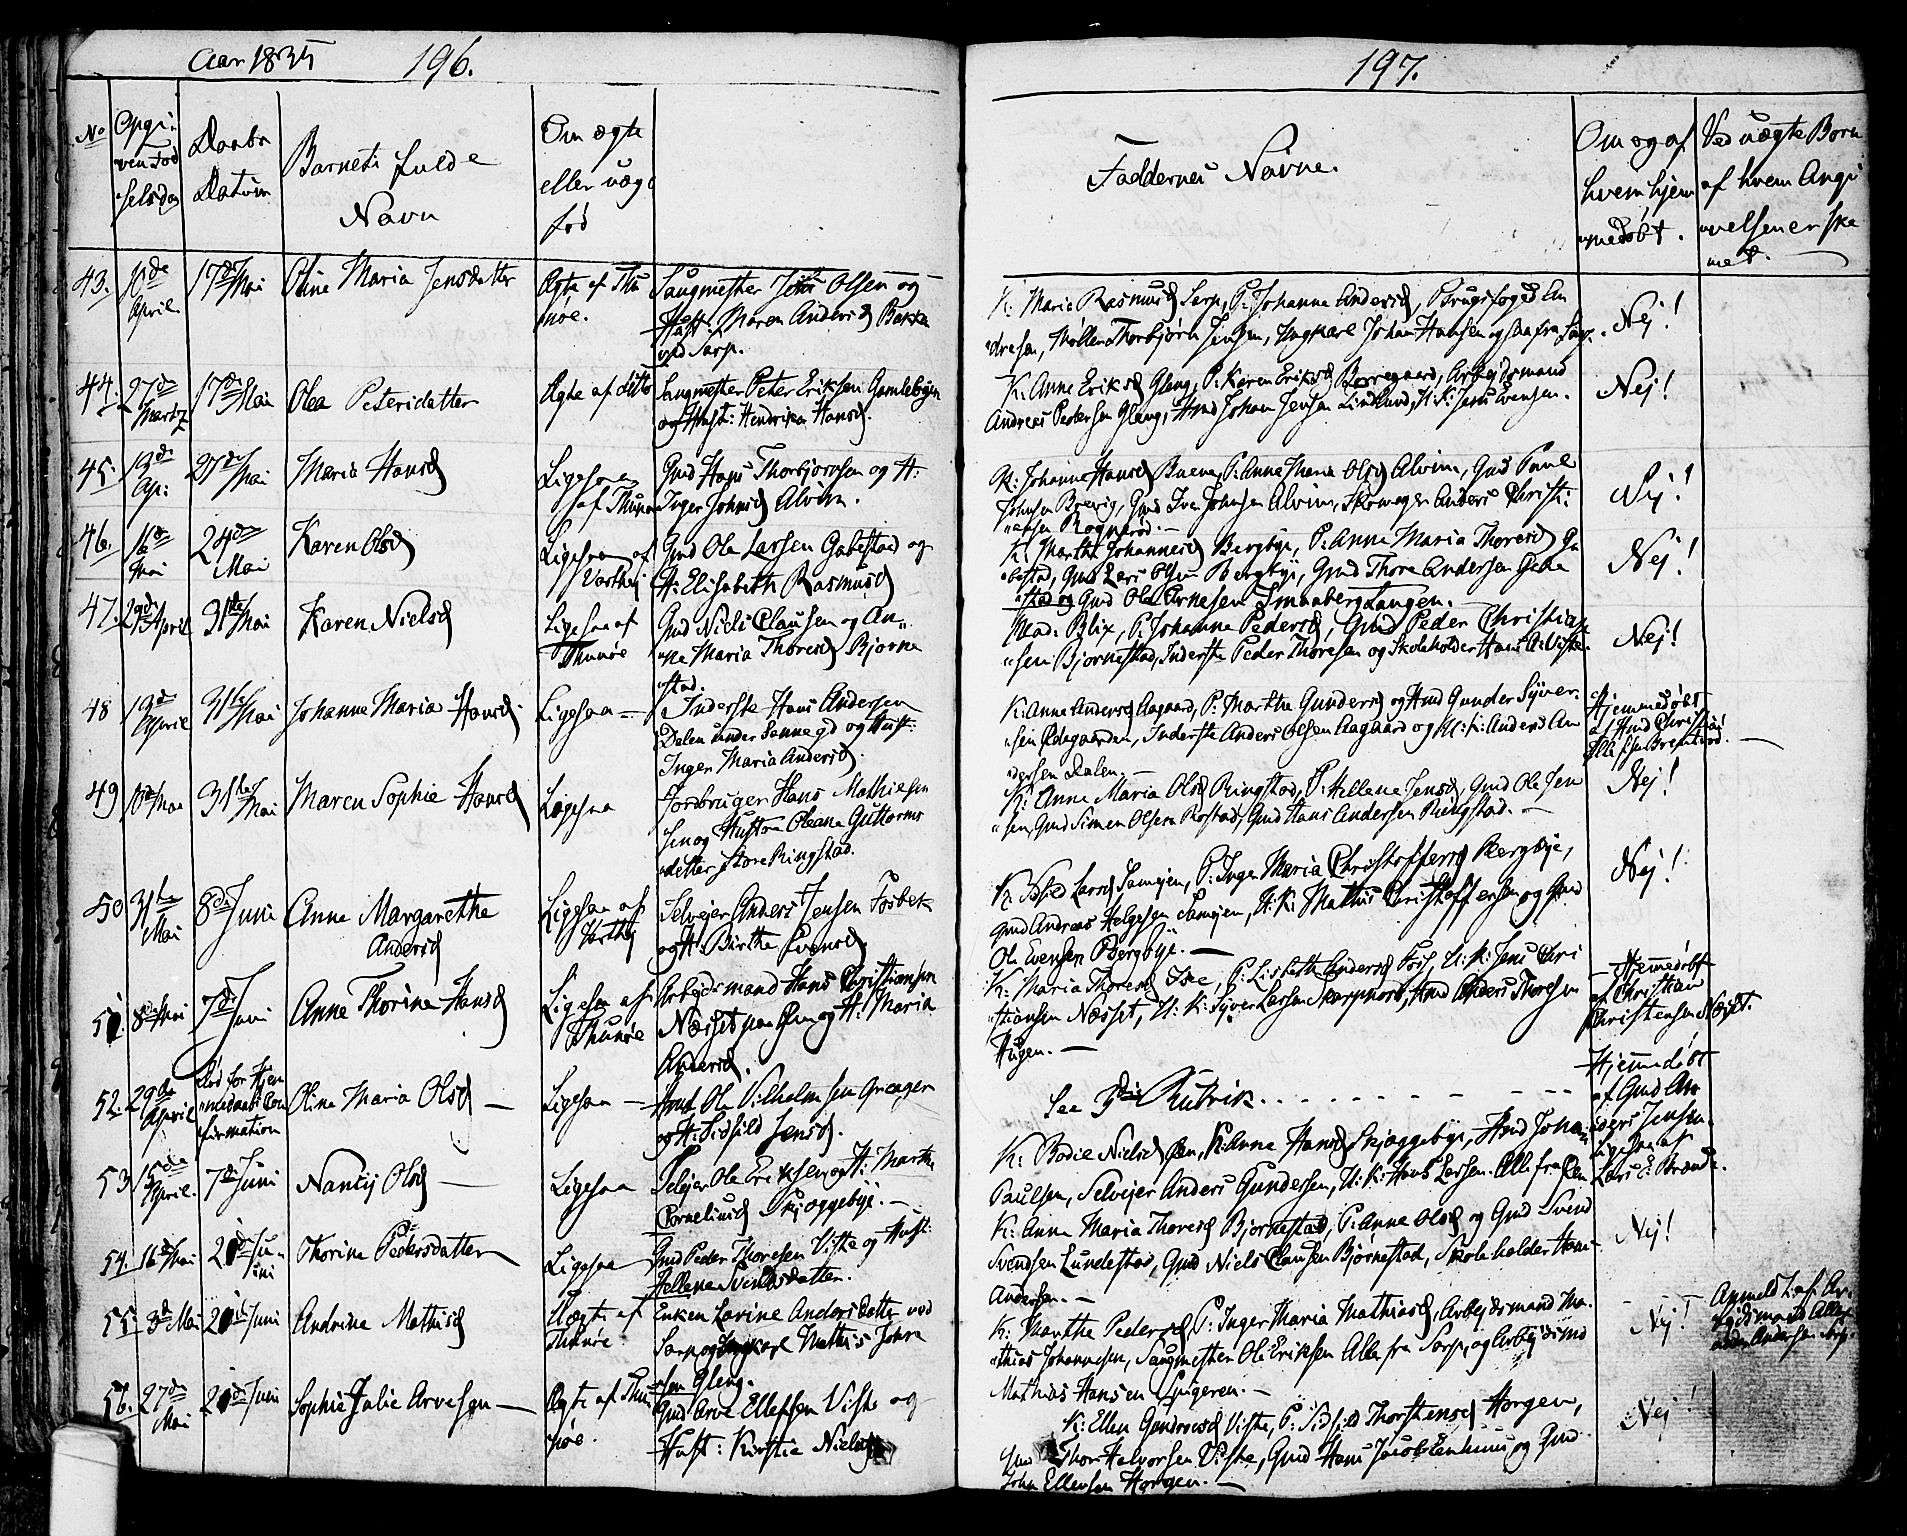 Aar 1835 196.
No
Opgi-
ven Fød
selsdag
Daabs
Datum
Barnets fulde
Navn
Om ægte
eller uæg
fød
43. 10de April. 17de Mai Oline Maria Jensdatter Ægte af Thu
nøe.
Saugmester Jens Olsen og
Hust: Maren Andersd Bakke
ved Sarp.
44. 27de Martz 17de Mai Olea Petersdatter Ægte af ditto
Saugmester Peter Eriksen Gamlebyen
og Hust: Hendrikea Hansd.
45. 13de Ap: 27de Mai Maria Hansd Ligesaa
af Thunøe
Gmd Hans Thorbjørnsen og H:
Inger Johnsd Alvim.
46. 16de Mai 24de Mai Karen Olsd Ligesaa af
Varteig
Gmd Ole Larsen Gabestad og
H: Elisabeth Rasmusd
47. 29de April 31te Mai Karen Nielsd Ligesaa af
Thunøe
Gmd Niels Clausen og An-
"ne Maria Thoresd Bjørne
stad.
48 19de April 31te Mai Johanne Maria Hansd. Ligesaa
Inderste Hans Andersen
Dalen under Sannegd og Hust:
Inger Maria Andersd.
49 10de Mai 31te Mai Maren Sophie Hansd Ligesaa
Jordbruger Hans Mathiesen
sen og Hustru Oleana Guttorms
"datter Store Ringstad.
50 31te Mai 8de Juni Anne Margarethe
Andersd
Ligesaa af
Varteig
Selvejer Anders Jensen Fosbek
og H: Birthe Evensd.
51. 8de Mai 7de Juni Anne Thorine Hansd Ligesaa af
Thunøe
Arbejdsmand Hans Christiansen
Næsset paa Øen og H: Maria
Andersd.
52. 29de April Død før Hjem
medaabs Con
firmation
Oline Maria Olsd Ligesaa
Hmd Ole Vilhelmsen Grønager
og H: Sidsild Jensd.
53 15de April. 7de Juni Nancy Olsd Ligesaa
Selejer Ole Eriksen og H: Marthe
Corneliusd Skjøggebye.
54. 16de Mai 21de Ju-
ni
Thorine Pedersdatter Ligesaa
Gmd Peder Thoresen Viste og Hust:
Hellene Svendsdatter.
55. 3de Mai 21de Juni Andrine Mathisd Uægte af
Thunøe
Enken Larine Andersdatter ved
Sarp og Ungkarl Mathis John
sen Gleng.
56. 27de Mai 21de Juni Sophie Julie Arvesen Ægte af Thu
nøe.
Gmd Arve Ellefsen Viste og
Hust: Kirstie Nielsd
197.
Faddernes Navne.
Om og af
hvem hjem
medøbt.
Ved uægte Børn
af hvem Angi
velsen er ske
et.
K: Maria Rasmusd Sarp, P: Johanne Andersd, Brugsfoged An
"dresen, Møller Thorbjørn Jensen, Ungkarl Johan Hansen og saa fra Sarp. Nej!
K: Anne Eriksd Gleng, P: Karen Eriksd Borregaard, Arbejdsmand
Andreas Pedersen Gleng, Hmd Johan Jensen Lindlund, U: K: Jens Evensen. Nej!
K: Johanne Hansd Buene, P: Anne Maria Olsd Alvim, Gmd Paul
Johnsen Brevig, Gmd Iver Johnsen Alvim, Skomager Anders Christi-
"ansen Rognerød. Nej!
K: Marthe Johannesd Bergbye, P: Anne Maria Thoresd Ga
"bestad, Gmd Lars Olsen Bergbye, Gmd Thore Andersen Gabe
"stad og Gmd Ole Arnesen Smaaberg Langen. Nej!
Mad: Blix, P: Johanne Pedersd, Gmd Peder Christian
"sen Bjørnestad, Inderste Peder Thoresen og Skoleholder Hans A: Viste. Nej!
K: Anne Andersd Aagaard, P: Marthe Gundersd og Hmd Gunder Syver-
"sen Ødegaarden, Inderste Anders Olsen Aagaard og U: K: Anders An
"dersen Dalen.
Hjemmedøbt
af Hmd Christian
K: Anne Maria Olsd Ringstad, P: Hellene Jensd, Gmd Ole Jen
"sen, Gmd Simen Olsen Rostad, Gmd Hans Andersen Ringstad. Nej!
K: Sidsel Larsd Samejen, P: Inger Maria Christoffersd Bergbye,
Gmd Andreas Helgesen Samejen, U: K: Mathis Christoffersen og Gmd
Ole Evensen Bergbye. Nej!
K: Maria Thoresd Ise, P: Lisbeth Andersd Foss, U: K: Jens Chri
"stiansen Næsset, U: K: Syver Larsen Skarpnord, Hmd Anders Thoresen
Hugen.
Hjemmedøbt
af Christian
Christensen Næset.
See 3die Rubrik.
Hjemmedøbt
af Gmd An
ders Jensen.
K: Bodil Nielsd Øen, P: Anne Hansd Skjøggebye, Hmd Johan
Paulsen, Selvejer Anders Gundersen, U: K: Hans Larsen. Alle fra Øen
Ligesaa af
Lars E: Brande.
K: Anne Maria Thoresd Bjørnestad, P: Anne Olsd og Gmd Svend
Svendsen Lundestad, Gmd Niels Clausen Bjørnestad, Skoleholder Hans
Andersen. Nej!
K: Marthe Pedersd, P: Inger Maria Mathiasd, Arbejdsmand Ma-
"thias Johannesen, Saugmester Ole Eriksen Alle fra Sarp, og Arbejdsmd
Mathias Hansen Spigeren. Nej!
Anmeldt af Ar-
bejdsmand Allex
ander Andersen Sarp.
K: Ellen Gundersd Viste, P: Sidsild Thorstensd Horgen,
Gmd Thor Halvorsen Viste, Gmd Hans Jacobsen Huus og Gmd
John Ellensen Horgen. Nej!